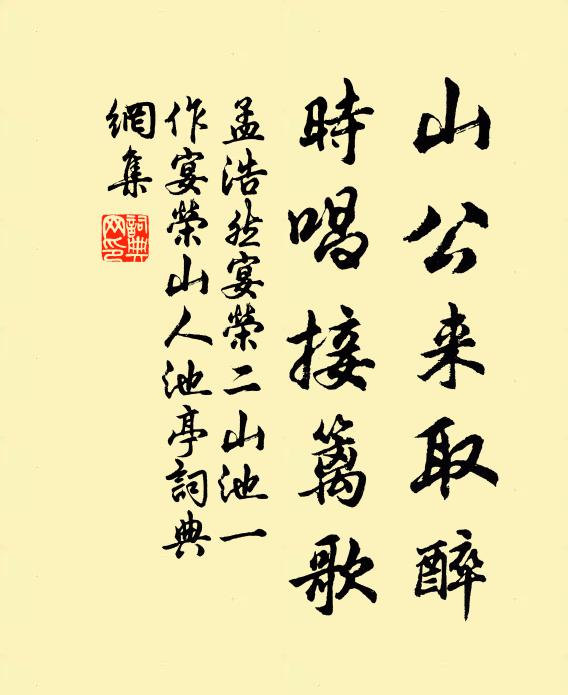 山公来取醉
時唱接篱歌
孟浩然宴榮二山池一
作宴榮山人池亭詞典
網集
詞典
网印